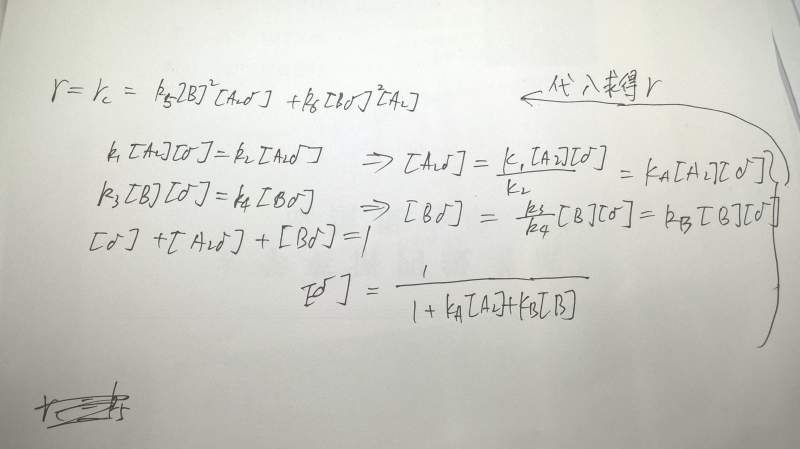 r = r_c = k₅[B]²[A₂σ] + k₆[Bσ]²[A₂]
代入求得r
k₁[A₂][σ] = k₂[A₂σ] ⇒ [A₂σ] = k₁[A₂][σ]/k₂ = k_A[A₂][σ]
k₃[B][σ] = k₄[Bσ] ⇒ [Bσ] = k₃/k₄ [B][σ] = k_B[B][σ]
[σ] + [A₂σ] + [Bσ] = 1
[σ] = 1/(1 + k_A[A₂] + k_B[B])